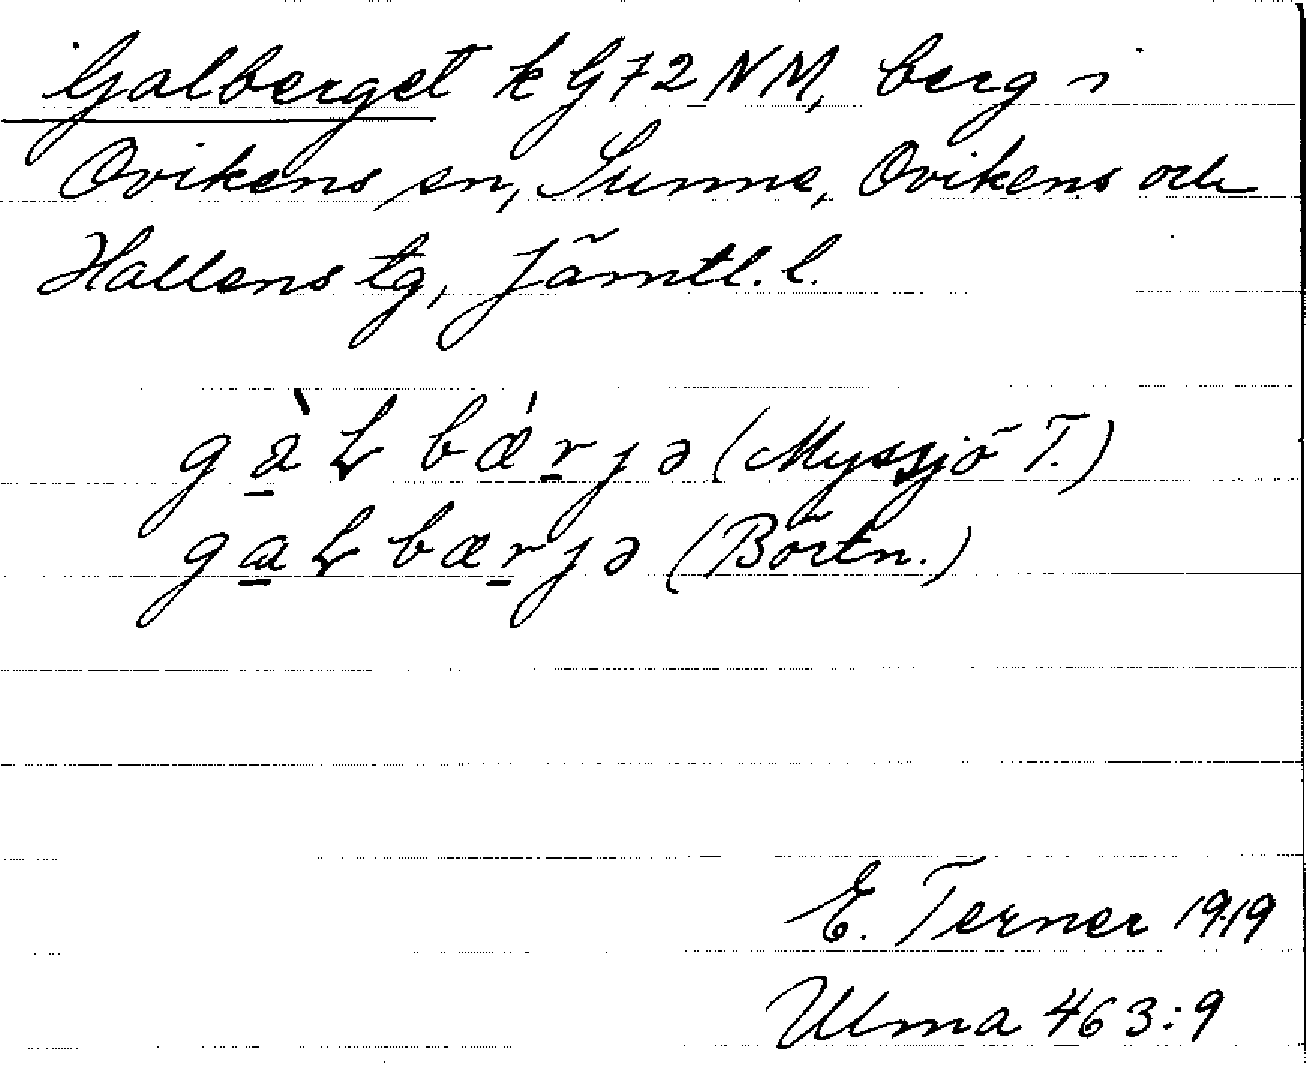 Galberget k G72NM, berg i
Ovikens sn, Sunne, Ovikens och
Hallens tg, Jämtl. l.
gàɫbǽrjə (Myssjö T.)
gaɫbærjə (Börtn.)
E. Terner 1919
Ulma 463:9